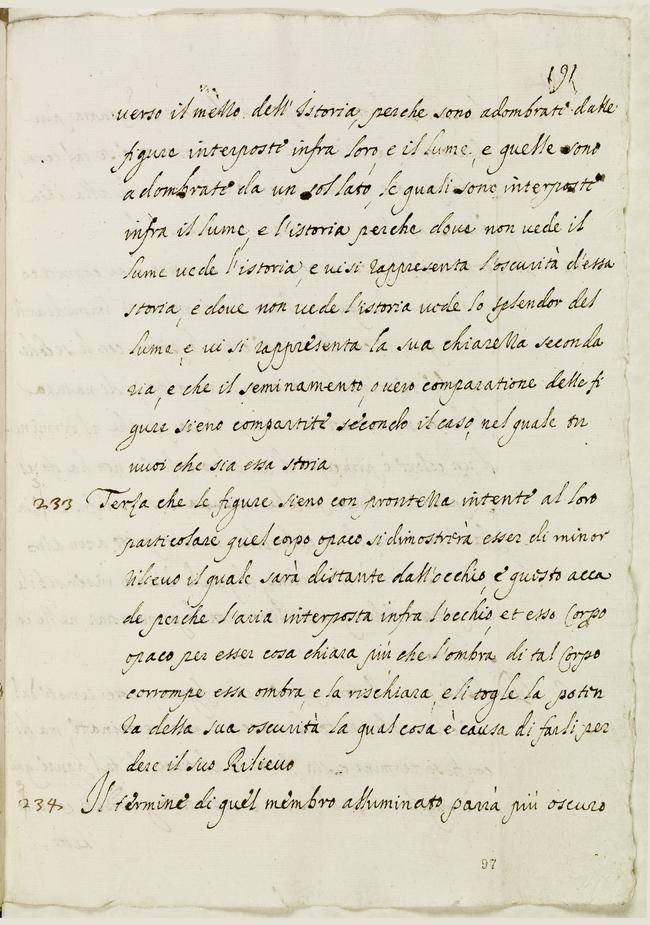 191
verso il mezzo dell' Istoria, perche sono adombrate dalle
figure interposte infra loro, e il lume, e quelle sono
adombrate da un sol lato, le quali sono interposte
infra il lume, e l'istoria perche dove non vede il
lume vede l'istoria, e vi si rappresenta l'oscurità d'essa
storia, e dove non vede l'istoria vede lo splendor del
lume, e vi si rappresenta la sua chiarezza seconda
ria, e che il seminamento, overo comparatione delle fi
gure sieno compartite secondo il caso, nel quale tu
vuoi che sia essa storia
233 Terza che le figure sieno con prontezza intente al loro
particolare quel corpo opaco si dimostrerà esser di minor
rilievo il quale sarà distante dall'occhio, e questo acca
de perche l'aria interposta infra l'occhio, et esso Corpo
opaco per esser cosa chiara più che l'ombra di tal Corpo
corrompe essa ombra, e la rischiara, e li togle la poten
za della sua oscurità la qual cosa è causa di farli per
dere il suo Rilievo
234 Il termine di quel membro alluminato parrà più oscuro
97